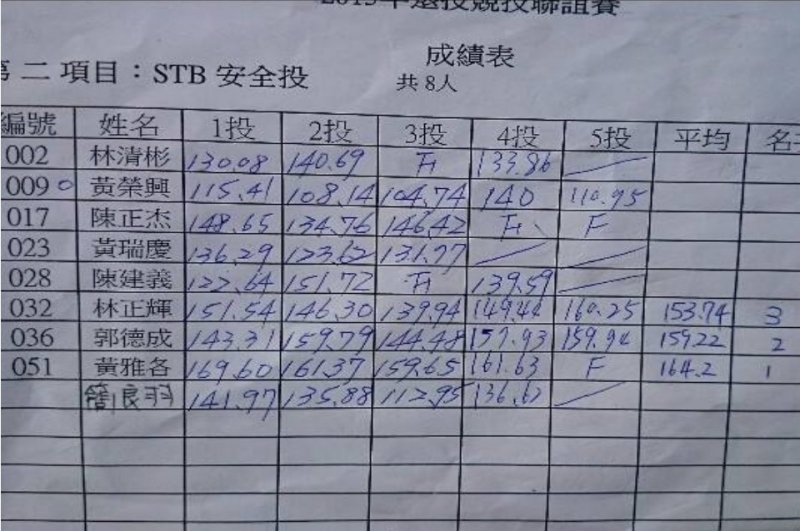 2015年遠投競技聯誼賽
第二項目：STB 安全投
成績表
共 8人
編號 姓名 1投 2投 3投 4投 5投 平均 名
002 林清彬 130.08 140.69 F 133.86 ／
009 黃榮興 115.41 108.14 104.74 140 110.95
017 陳正杰 148.65 134.76 146.42 F F
023 黃瑞慶 136.29 123.62 131.77 ／ ／
028 陳建義 122.64 151.72 F 139.59 ／
032 林正輝 151.54 146.30 139.94 149.44 160.25 153.74 3
036 郭德成 143.31 159.79 144.48 157.93 159.94 159.22 2
051 黃雅各 169.60 161.37 159.65 161.63 F 164.2 1
簡良羽 141.97 135.88 112.95 136.62 ／